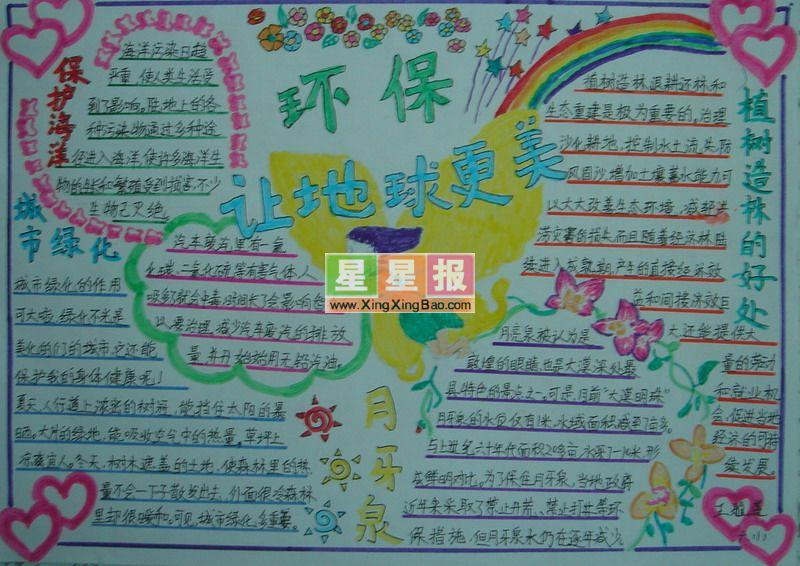 环保
让地球更美
保护海洋
海洋污染日趋
严重,使人类生活受
到了影响,陆地上的各
种污染物通过多种途
径进入海洋,使许多海洋生
物的生长和繁殖受到损害,不少
生物已灭绝。
城市绿化
城市绿化的作用
可大啦,绿化不光是
美化的们的城市,它还能
保护我的身体健康呢!
夏天,人行道上浓密的树冠,能挡住太阳的暴
晒。大片的绿地,能吸收空气中的热量。草坪上
凉爽宜人。冬天,树木遮盖的土地,使森林里的热
量不会一下子散发出去,外面很冷森林
里却很暖和。可见,城市绿化,多重要。
汽车废汽里有一氧
化碳、二氧化硫等有害气体,人
吸多就会中毒,时间长了会影响
以要治理,减少汽车废汽的排放
量并开始始用无铅汽油。
星星报
www.XingXingBao.com
植树造林的好处
植树造林,退耕还林和
生态重建是极为重要的。治理
沙化耕地,控制水土流失,防
风固沙,增加土壤蓄水能力,可
以大大改善生态环境,减轻洪
涝灾害的损失,而且随着经济林陆
续进入成熟期,产生的直接经济效
益和间接济效巨
大,还能提供大
量的劳动
和就业机
会,促进当地
经济的可持
续发展。
月牙泉
月亮泉被认为是
敦煌的眼睛,也是大漠深处最
具特色的景点之一。可是,目前“大漠明珠”
月牙泉的水位仅有1米,水域面积减到7亩多。
与上世纪六十年代面积20多亩,水深7-10米,形
成鲜明对比。为了保住月牙泉,当地政府
近年来采取了禁止开荒、禁止打井等环
保措施,但月牙泉水仍在逐年减少。